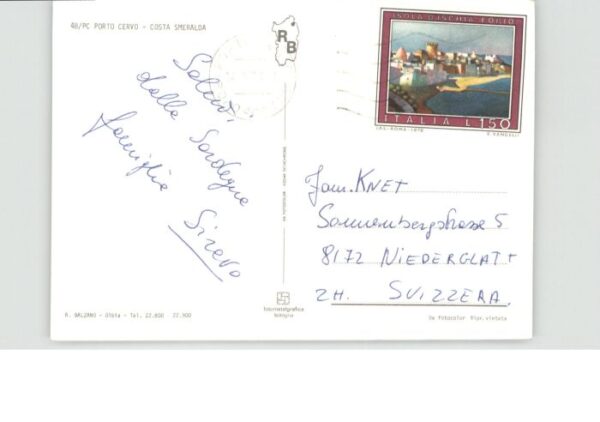 48/PC PORTO CERVO - COSTA SMERALDA
RB
ISOLA D'ISCHIA-FORIO
ITALIA L.150
I.P.S.-ROMA-1976
E VANGELLI
Saluti,
dalla Sardegna
famiglia
Fam. KNET
Sonnenbergstrasse 5
8172 NIEDERGLATT
ZH. SVIZZERA.
fotometalgrafica
bologna
R. BALZANO - Olbia - Tel. 22.800 - 22.900
Va fotocolor Ripr.vietata